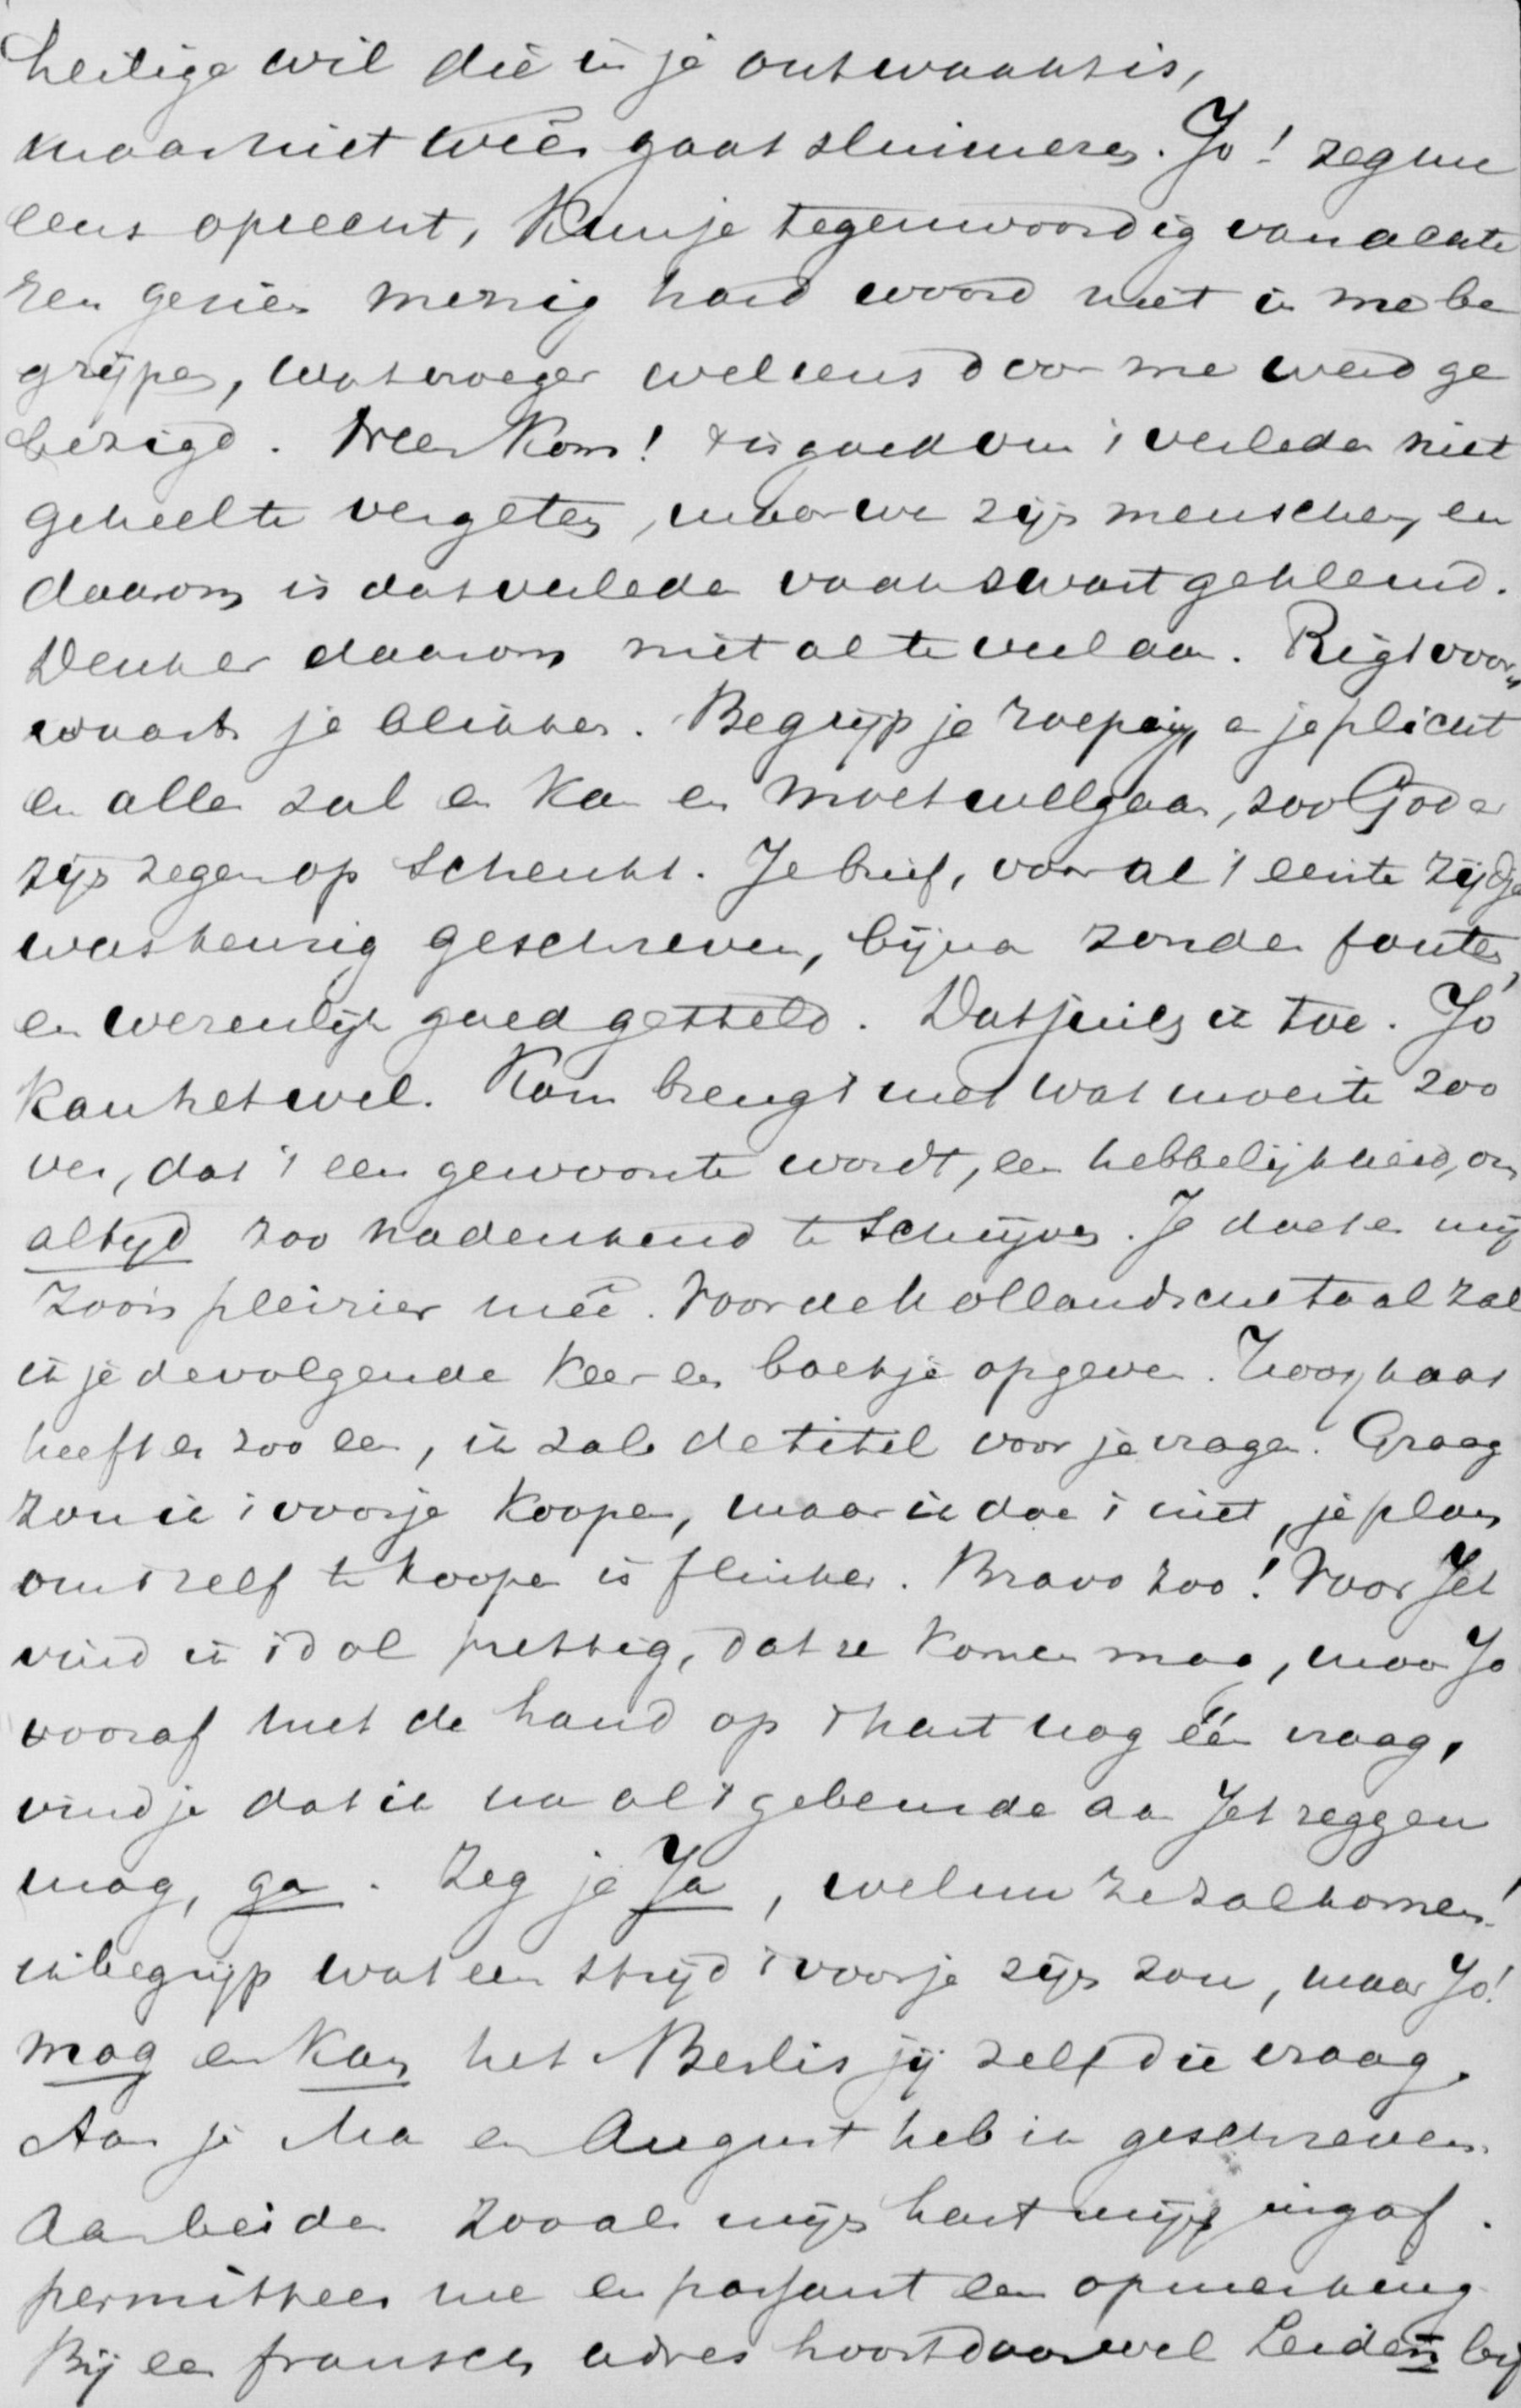 heilige wil die in je ontwaakt is,
maar niet weêr gaat sluimeren. Jo! zeg me
eens oprecht, kun je tegenwoordig van achte
ren gezien menig hard woord niet in me be
grijpen, wat vroeger wel eens door me werd ge
bezigd. Nee kom! 't is goed om 't verleden niet
geheel te vergeten, maar we zijn menschen, en
daarom is dat verleden vaak zwart gekleurd.
Denk er daarom niet al te veel aan. Rigt voor„
waarts je blikken. Begrijp je roeping, en je plicht
en alles zal en kan en moet wel gaan, zoo God er
zijn zegen op schenkt. Je brief, vooral 't eerste zijdje
was keurig geschreven, bijna zonder fouten,
en werenlijk goed gesteld. Dat juich ik toe. Jo
kan het wel. Kom breng 't met wat moeite zoo
ver, dat 't een gewoonte wordt, een hebbelijkheid, om
altijd zoo nadenkend te schrijven. Je doet er mij
zoo'n pleizier meê. Voor de Hollandsche taal zal
ik je de volgende keer een boekje opgeven.
heeft er zoo een, ik zal de titel voor je vragen. Graag
zou ik 't voor je koopen, maar ik doe 't niet, je plan
om 't zelf te koopen is flinker. Bravo zoo! Voor Jet
vind ik 't dol prettig, dat ze komen mag, maar Jo
vooraf met de hand op 't hart nog één vraag,
vind je dat ik na al 't gebeurde aan Jet zeggen
mag, ga. Zeg je Ja, welnu ze zal komen!
ik begrijp wat een strijd 't voor je zijn zou, maar Jo!
mag en kan het Beslis jij zelf die vraag.
Aan je Ma en August heb ik geschreven.
Aan beiden zooals mijn hart mij ingaf.
permitteer me en passant een opmerking
Bij een fransch adres hoort daar wel Leiden bij